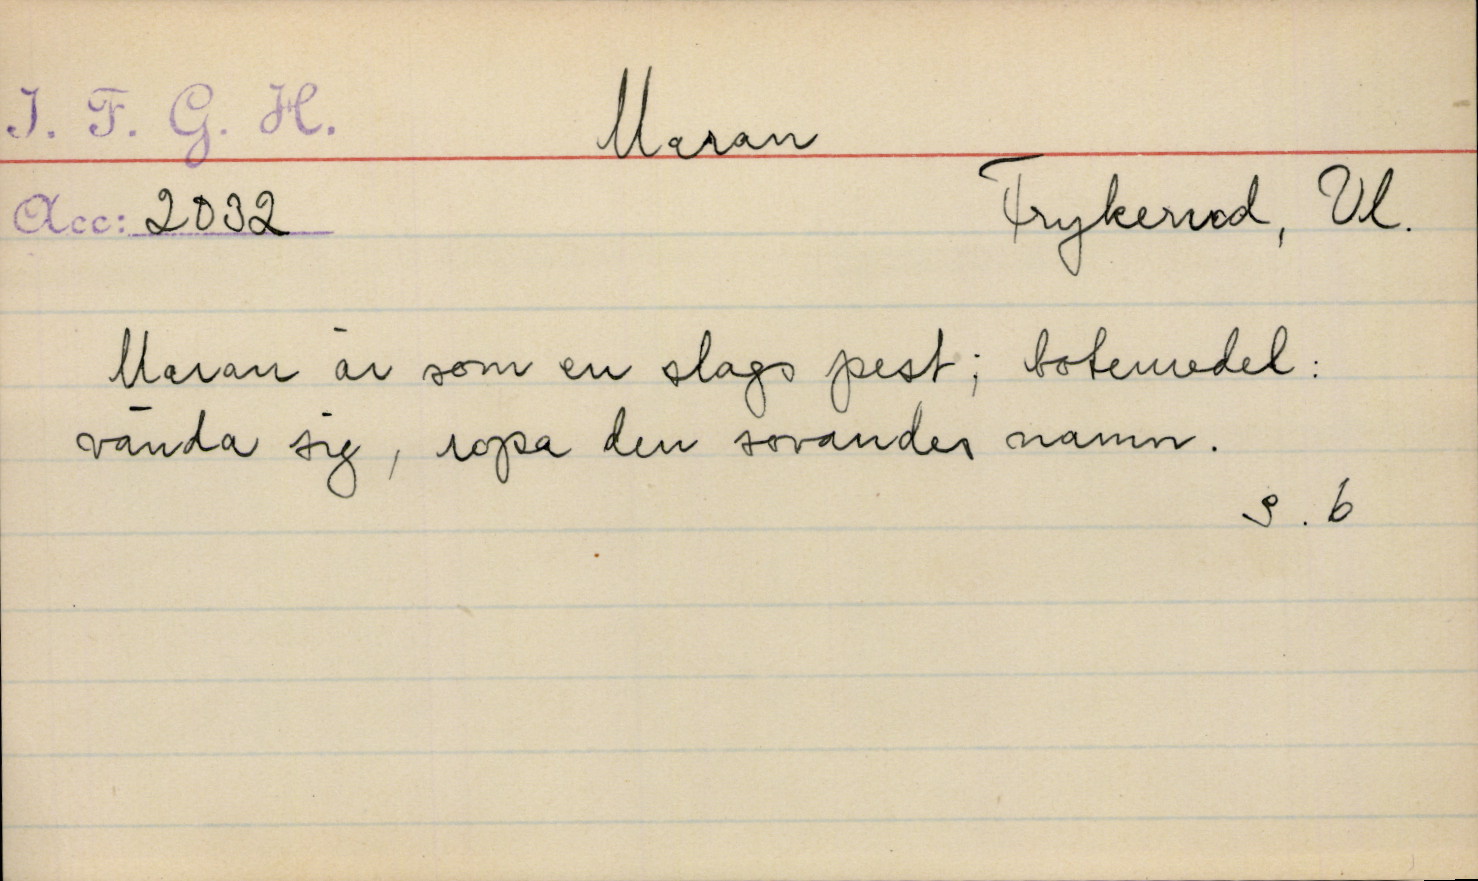 I. F. G. H.
Maran
Acc: 2032
Frykerud, Vl.
Maran är som en slags pest; botemedel:
vända sig, ropa den sovandes namn.
s. 6